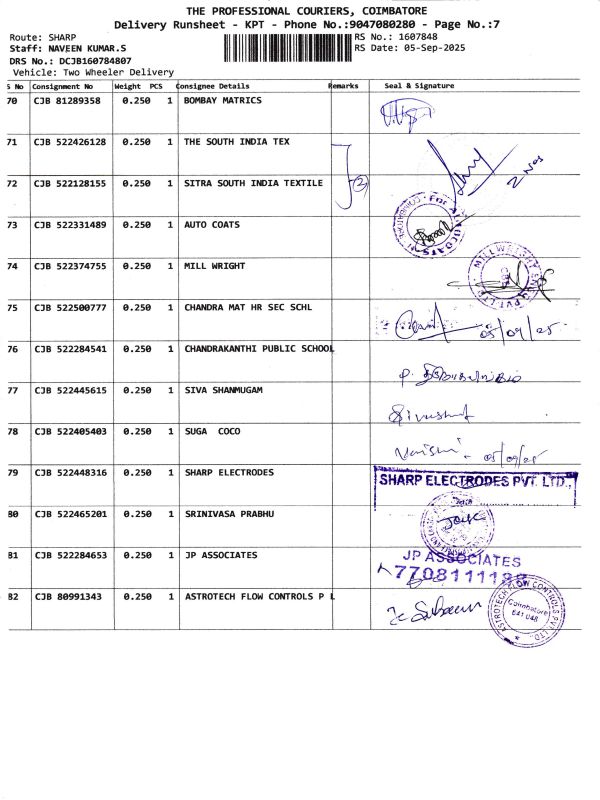 THE PROFESSIONAL COURIERS, COIMBATORE
Delivery Runsheet - KPT - Phone No.:9047080280 - Page No.:7
Route: SHARP RS No.: 1607848
Staff: NAVEEN KUMAR.S RS Date: 05-Sep-2025
DRS No.: DCJB160784807
Vehicle: Two Wheeler Delivery
S No Consignment No Weight PCS Consignee Details Remarks Seal & Signature
70 CJB 81289358 0.250 1 BOMBAY MATRICS
71 CJB 522426128 0.250 1 THE SOUTH INDIA TEX
2 Nos
72 CJB 522128155 0.250 1 SITRA SOUTH INDIA TEXTILE 2
73 CJB 522331489 0.250 1 AUTO COATS
74 CJB 522374755 0.250 1 MILL WRIGHT
75 CJB 522500777 0.250 1 CHANDRA MAT HR SEC SCHL
05/09/25
76 CJB 522284541 0.250 1 CHANDRAKANTHI PUBLIC SCHOOL
77 CJB 522445615 0.250 1 SIVA SHANMUGAM
78 CJB 522405403 0.250 1 SUGA COCO
05/09/25
79 CJB 522448316 0.250 1 SHARP ELECTRODES SHARP ELECTRODES PVT. LTD.,
80 CJB 522465201 0.250 1 SRINIVASA PRABHU
81 CJB 522284653 0.250 1 JP ASSOCIATES JP ASSOCIATES
82 CJB 80991343 0.250 1 ASTROTECH FLOW CONTROLS P L
ASTROTECH FLOW CONTROLS PVT. LTD.
Coimbatore
641 048